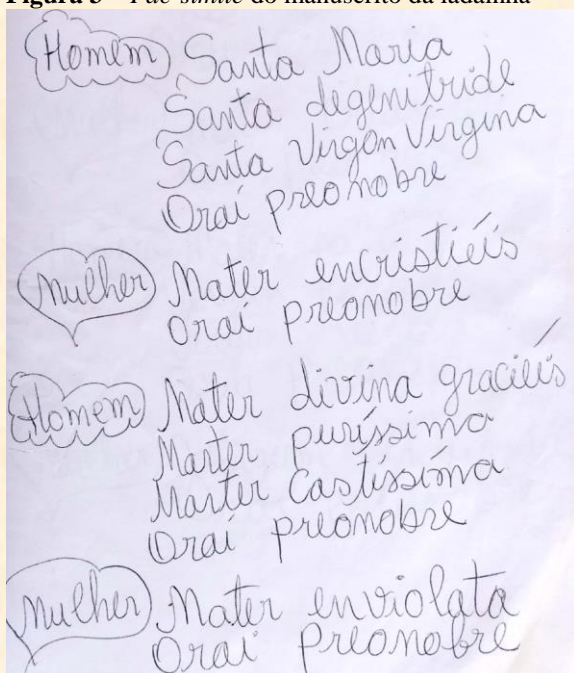 Figura 3 – Fac-símile do manuscrito da ladainha
Homem Santa Maria
Santa degenitride
Santa Virgon Virgina
Oraí preonobre
Mulher Mater encristieís
Oraí preonobre
Homem Mater divina gracieís
Marter puríssima
Marter Castíssima
Oraí preonobre
Mulher Mater enviolata
Oraí preonobre